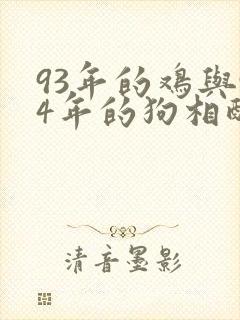 93年的鸡与
4年的狗相
清音墨影